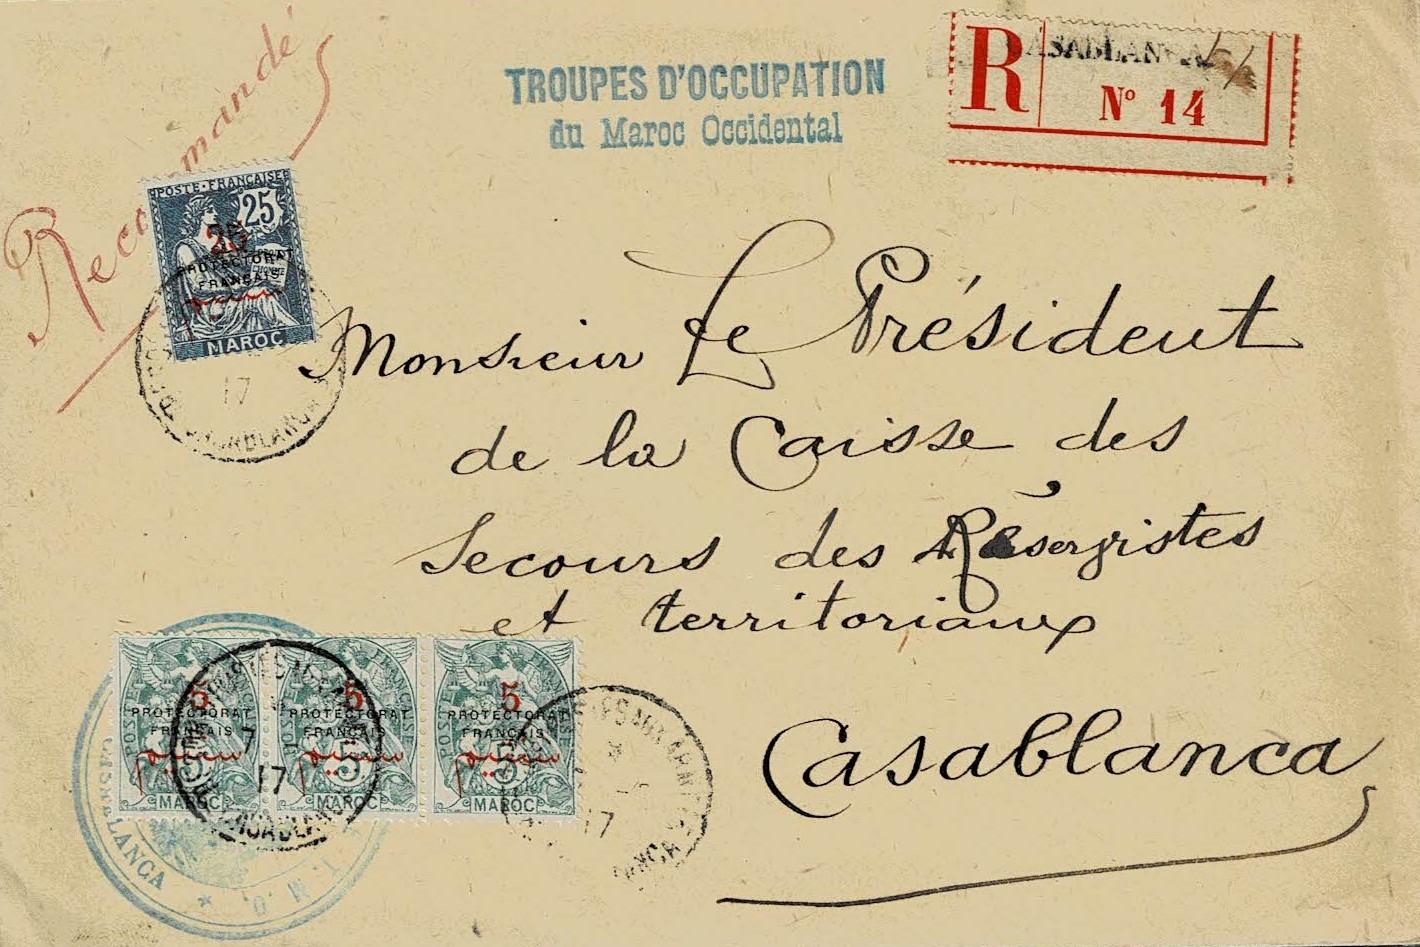 Recommandé
TROUPES D'OCCUPATION
du Maroc Occidental
CASABLANCA
R
N° 14
POSTE FRANÇAISE
25
25
PROTECTORAT
FRANÇAIS
MAROC
17
CASABLANCA
Monsieur Le Président
de la Caisse des
Secours des Réservistes
et territoriaux
Casablanca
5
PROTECTORAT
FRANÇAIS
5
MAROC
5
PROTECTORAT
FRANÇAIS
5
MAROC
5
PROTECTORAT
FRANÇAIS
5
MAROC
7
17
CASABLANCA
17
CASABLANCA